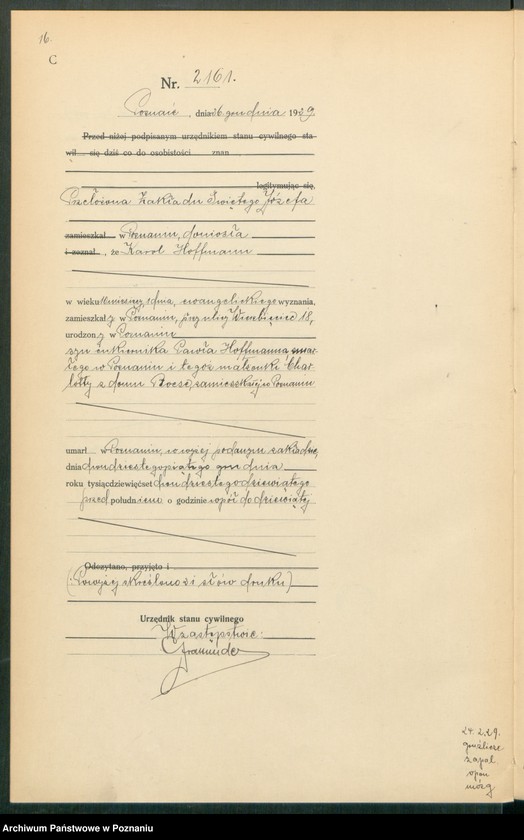 16.
C
Nr. 2161.
Poznań, dnia 26 grudnia 1929
Przed niżej podpisanym urzędnikiem stanu cywilnego sta-
wił się dziś co do osobistości znan
legitymując się
Przełożona Zakładu Świętego Józefa
zamieszkał w Poznaniu, doniosła
i zeznał , że Karol Hoffmann
w wieku miesięcy dnia, ewangelickiego wyznania,
zamieszkały w Poznaniu, przy ulicy Wierzbięcice 18,
urodzony w Poznaniu
syn cukiernika Pawła Hoffmanna, zmar-
łego w Poznaniu i tegoż małżonki Char-
lotty z domu zamieszkałej w Poznaniu
umarł w Poznaniu, w wyżej podanym zakładzie,
dnia dwudziestegopiątego grudnia
roku tysiącdziewięćset dwudziestegodziewiątego
przed południem o godzinie wpół do dziewiątej
Odczytano, przyjęto i
(: Powyżej skreślono słów druku)
Urzędnik stanu cywilnego
W zastępstwie:
24.2.29.
gruźlicze
zapal
opon
mózg
Archiwum Państwowe w Poznaniu